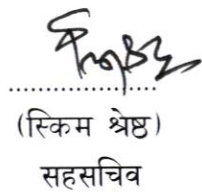 ....................
(स्किम श्रेष्ठ)
सहसचिव